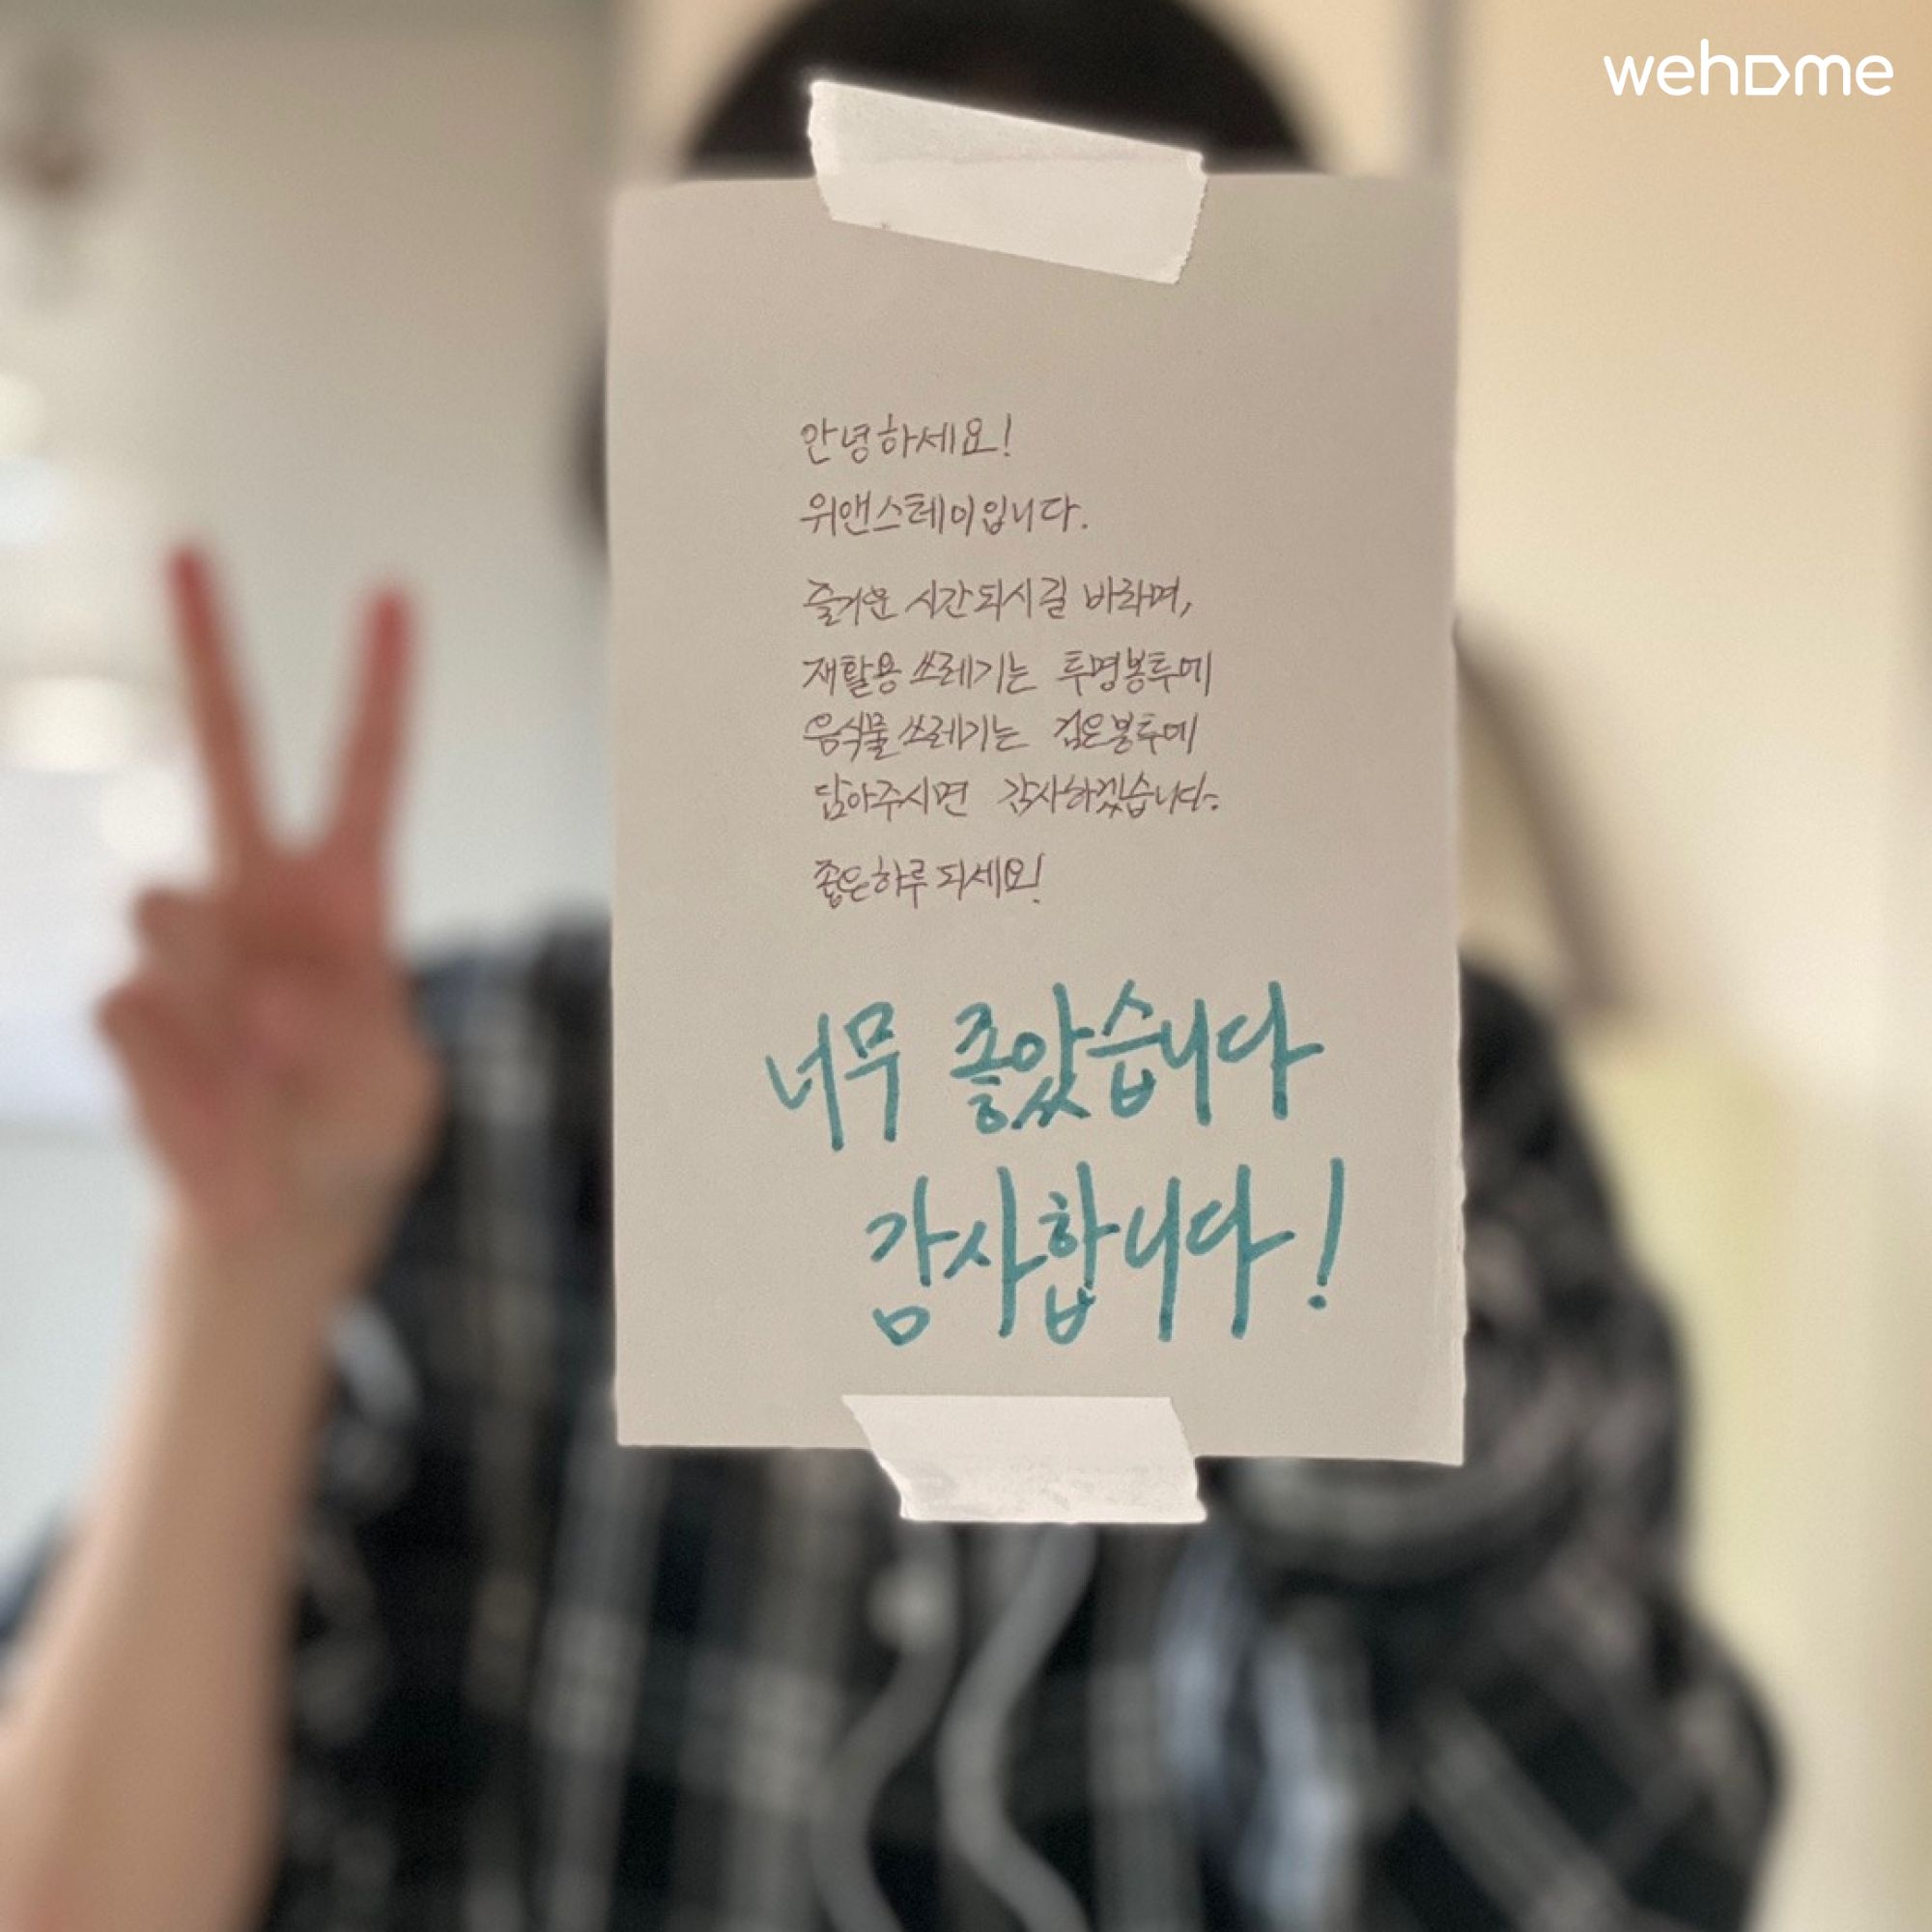 wehome
안녕하세요!
위앤스테이입니다.
즐거운 시간되시길 바라며,
재활용 쓰레기는 투명봉투에
음식물 쓰레기는 검은봉투에
담아주시면 감사하겠습니다.
좋은하루 되세요!
너무 좋았습니다
감사합니다!